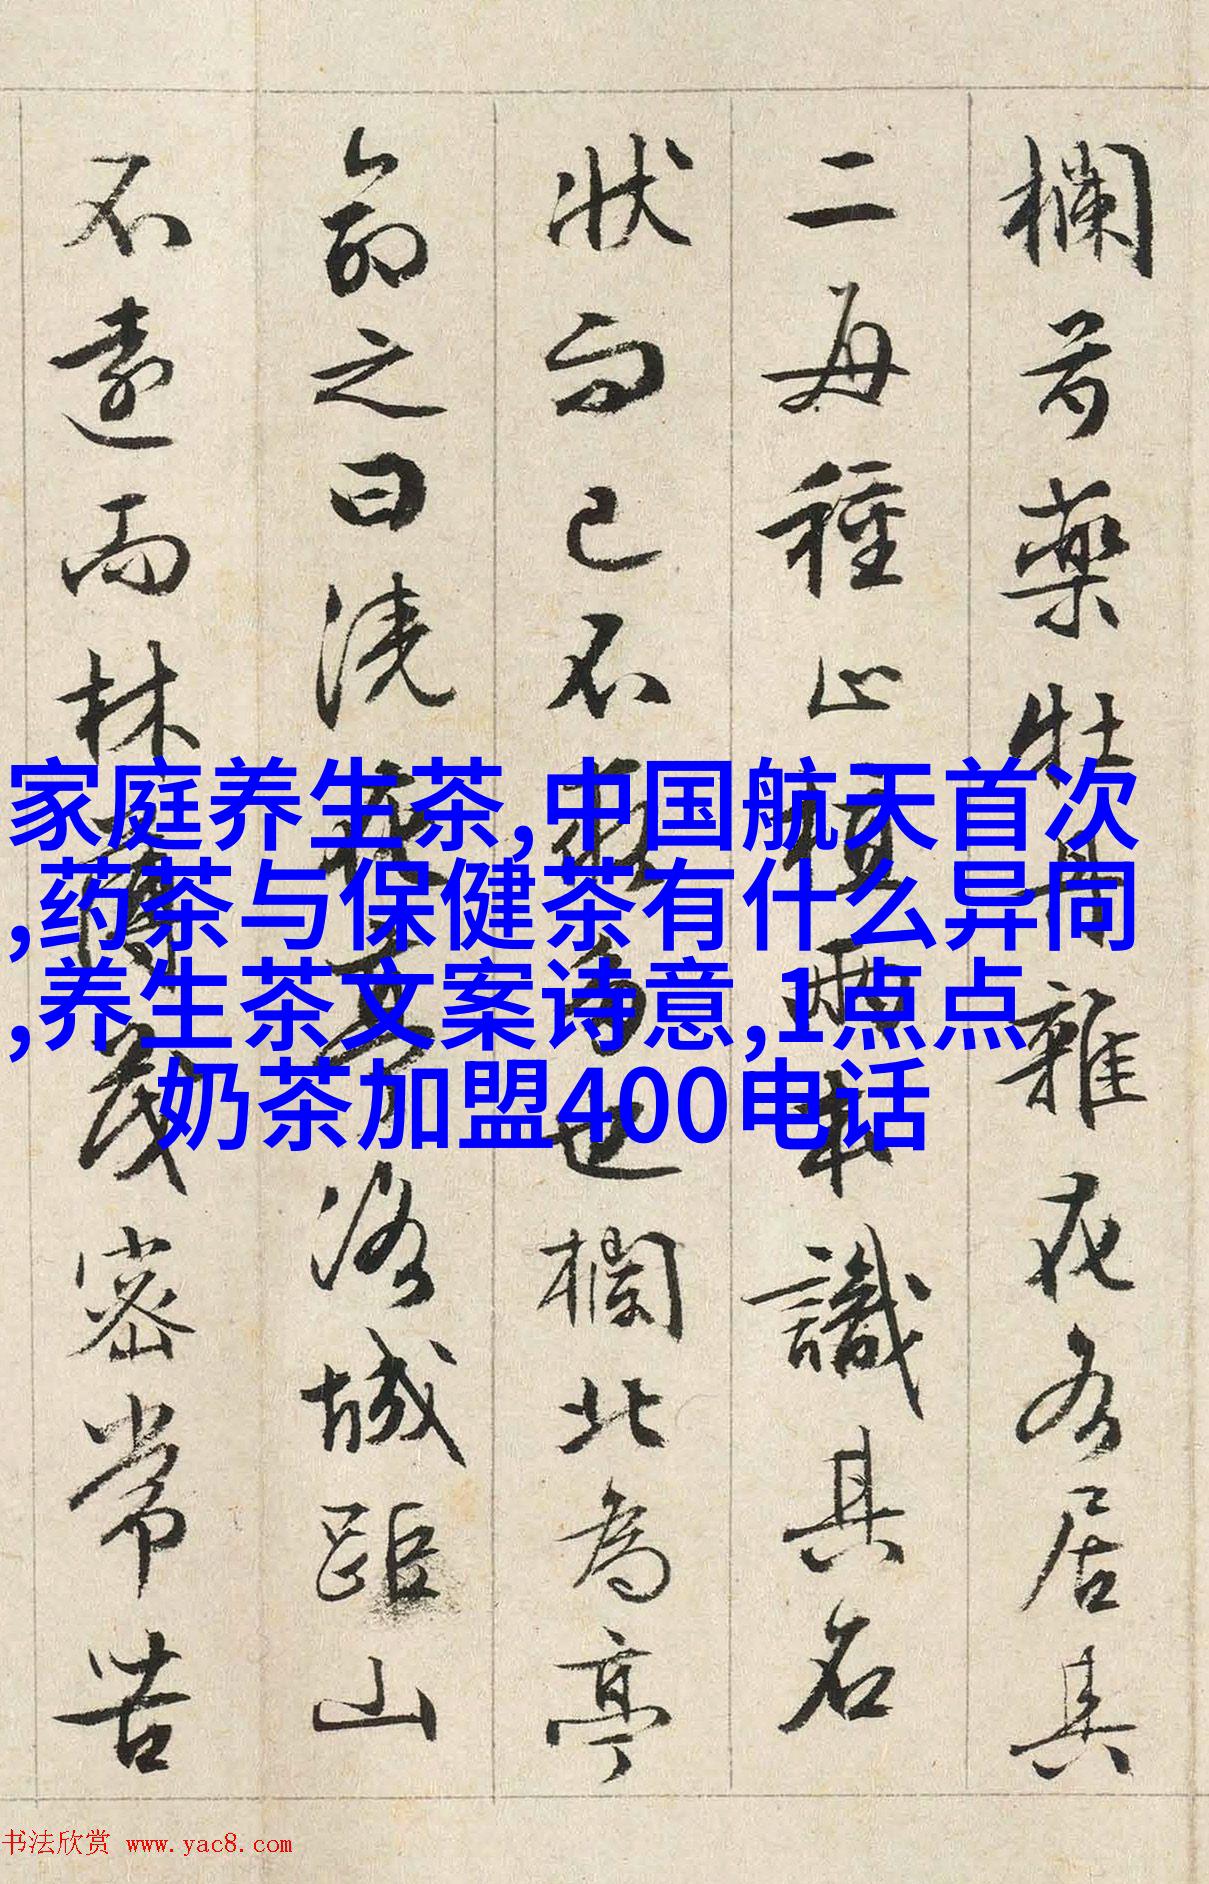 欄芍藥牡丹雜花各居其
二每種止植兩本識其名
狀而已不求多也欄北為亭
命之曰澆花亭洛城距山
不遠而林薄茂密常苦
家庭养生茶,中国航天首次
,药茶与保健茶有什么异同
,养生茶文案诗意,1点点
奶茶加盟400电话
书法欣赏 www.yac8.com